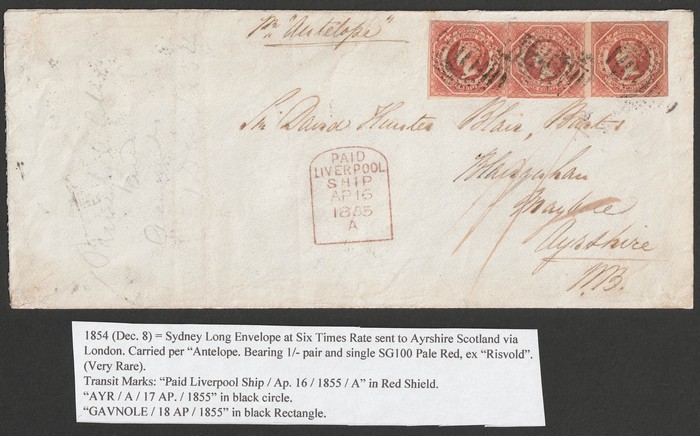 Per "Antelope"
Sir David Hunter Blair, Bart
PAID
LIVERPOOL
SHIP
AP 16
1855
A
Blairquhan
Maybole
Ayrshire
N.B.
1854 (Dec. 8) = Sydney Long Envelope at Six Times Rate sent to Ayrshire Scotland via
London. Carried per “Antelope. Bearing 1/- pair and single SG100 Pale Red, ex “Risvold”.
(Very Rare).
Transit Marks: “Paid Liverpool Ship / Ap. 16 / 1855 / A” in Red Shield.
“AYR / A / 17 AP. / 1855” in black circle.
“GAVNOLE / 18 AP / 1855” in black Rectangle.